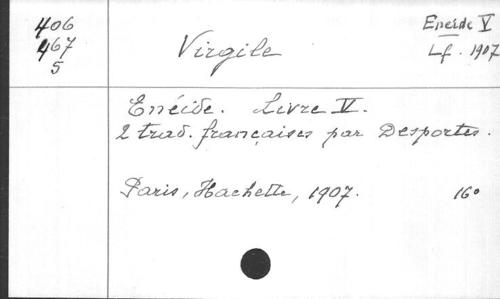 406
467
5
Virgile
Eneide V
Lf. 1907
Enéide. Livre V.
2 trad. françaises par Desportes.
Paris, Hachette, 1907. 16°